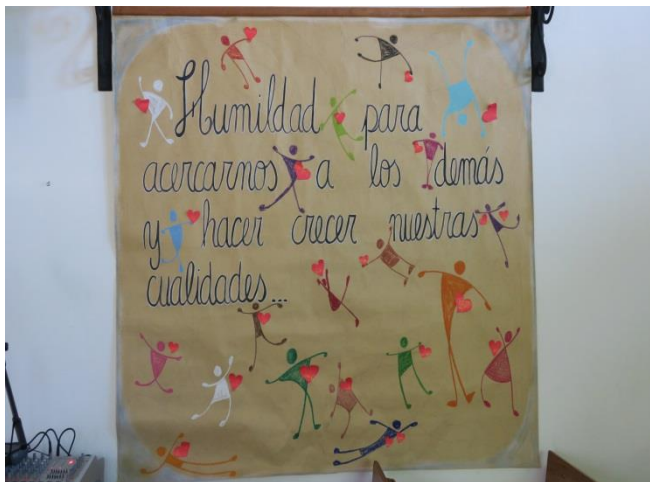 Humildad para
acercarnos a los demás
y hacer crecer nuestras
cualidades...